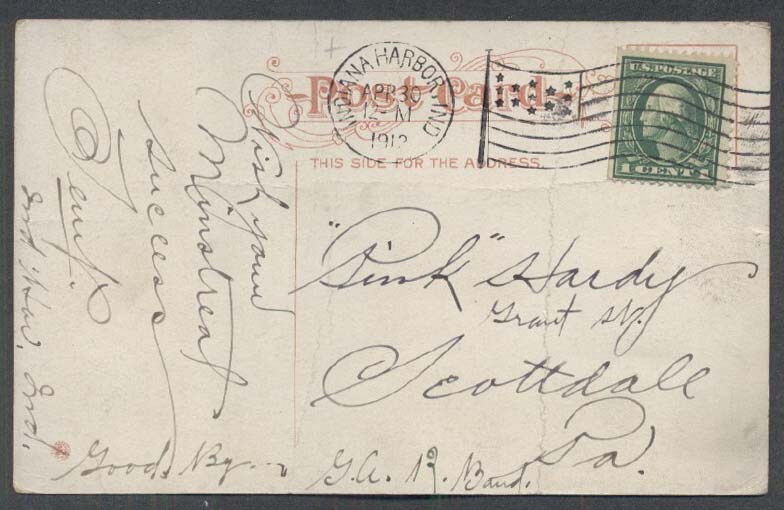 Post Card
THIS SIDE FOR THE ADDRESS.
INDIANA HARBOR IND
APR 30
12 - M
1912
U.S. POSTAGE
1 CENT 1
Wish your
Minstreal
success
Ind. Har. Ind.
Good. By.
"Pink" Hardy
Grant St.
Scottdale
Pa.
G.A.R. Band.